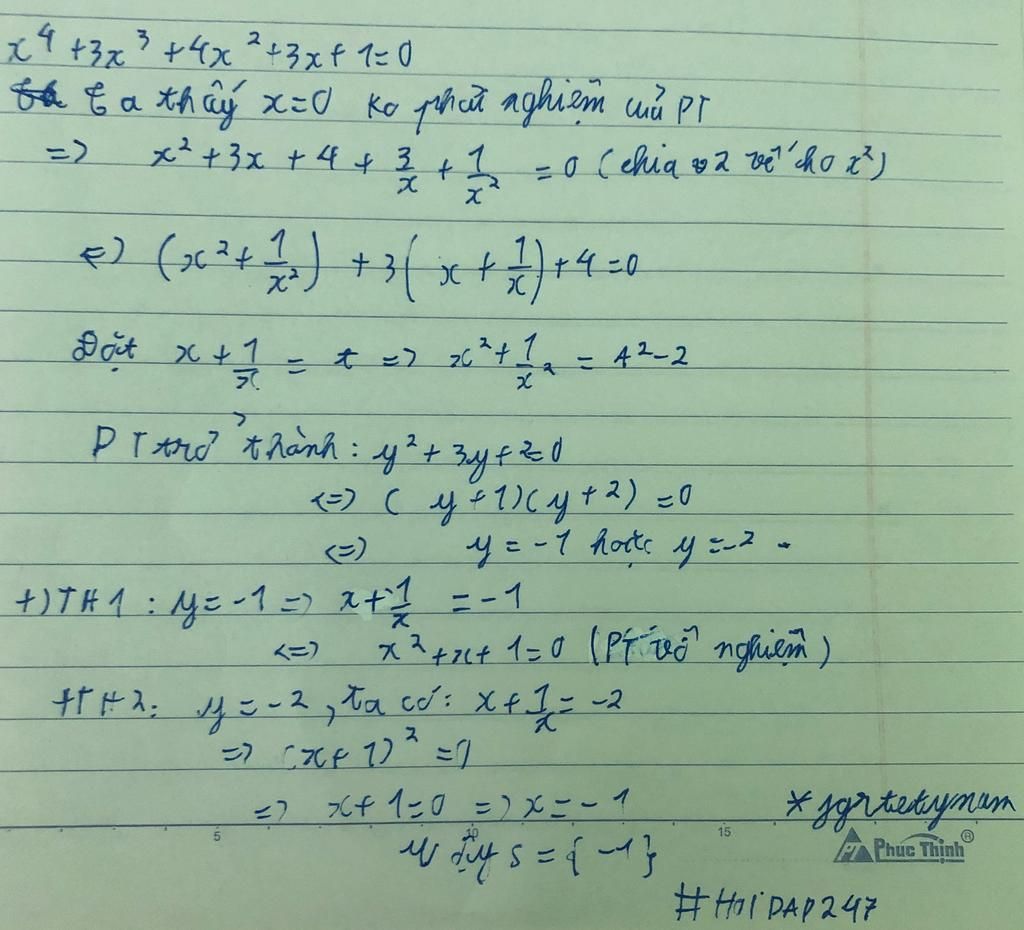 x⁴ + 3x³ + 4x² + 3x + 1 = 0
ta thấy x=0 ko phải nghiệm của PT
=> x² + 3x + 4 + 3/x + 1/x² = 0 (chia 2 vế cho x²)
<=> (x² + 1/x²) + 3(x + 1/x) + 4 = 0
Đặt x + 1/x = t => x² + 1/x² = t² - 2
PT trở thành: y² + 3y + 2 = 0
<=> (y + 1)(y + 2) = 0
<=> y = -1 hoặc y = -2
+) TH1: y = -1 => x + 1/x = -1
<=> x² + x + 1 = 0 (PT vô nghiệm)
+TH2: y = -2, ta có: x + 1/x = -2
=> (x + 1)² = 0
=> x + 1 = 0 => x = -1
* jgrtetymam
5 10 15
Vậy S = {-1}
Phúc Thịnh®
#HOIDAP247